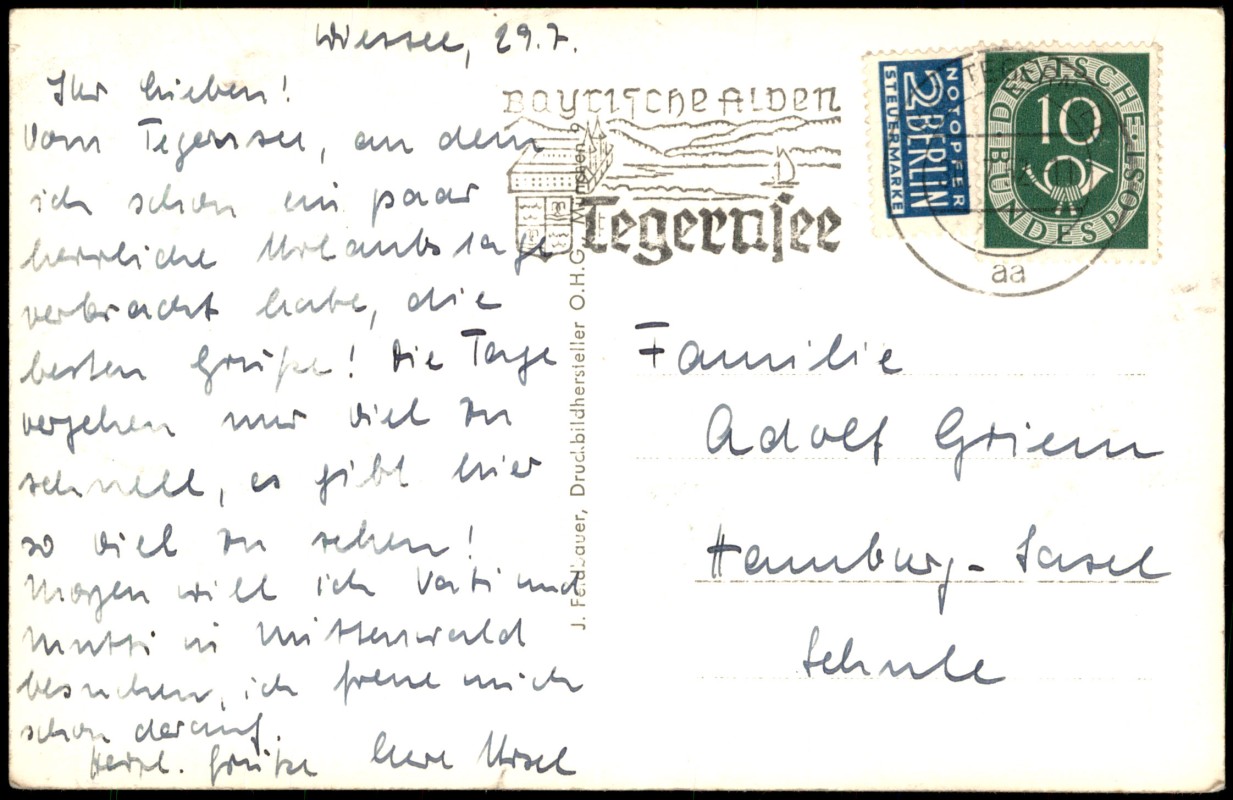 Wiessee, 29.7.
Ihr Lieben!
Vom Tegernsee, an dem
ich schon ein paar
herrliche Urlaubstage
verbracht habe, die
besten Grüße! Die Tage
vergehen nur viel zu
schnell, es gibt hier
so viel zu sehen!
Morgen will ich Vati und
Mutti in Mittenwald
besuchen, ich freue mich
schon darauf.
Herzl. Grüße Eure Ursel
J. Feldbauer, Druckbildhersteller O.H.G., München 9
Bayrische Alpen
Tegernsee
NOTOPFER
2 BERLIN
STEUERMARKE
DEUTSCHE BUNDESPOST
10
aa
Familie
Adolf Griem
Hamburg-Sasel
Schule